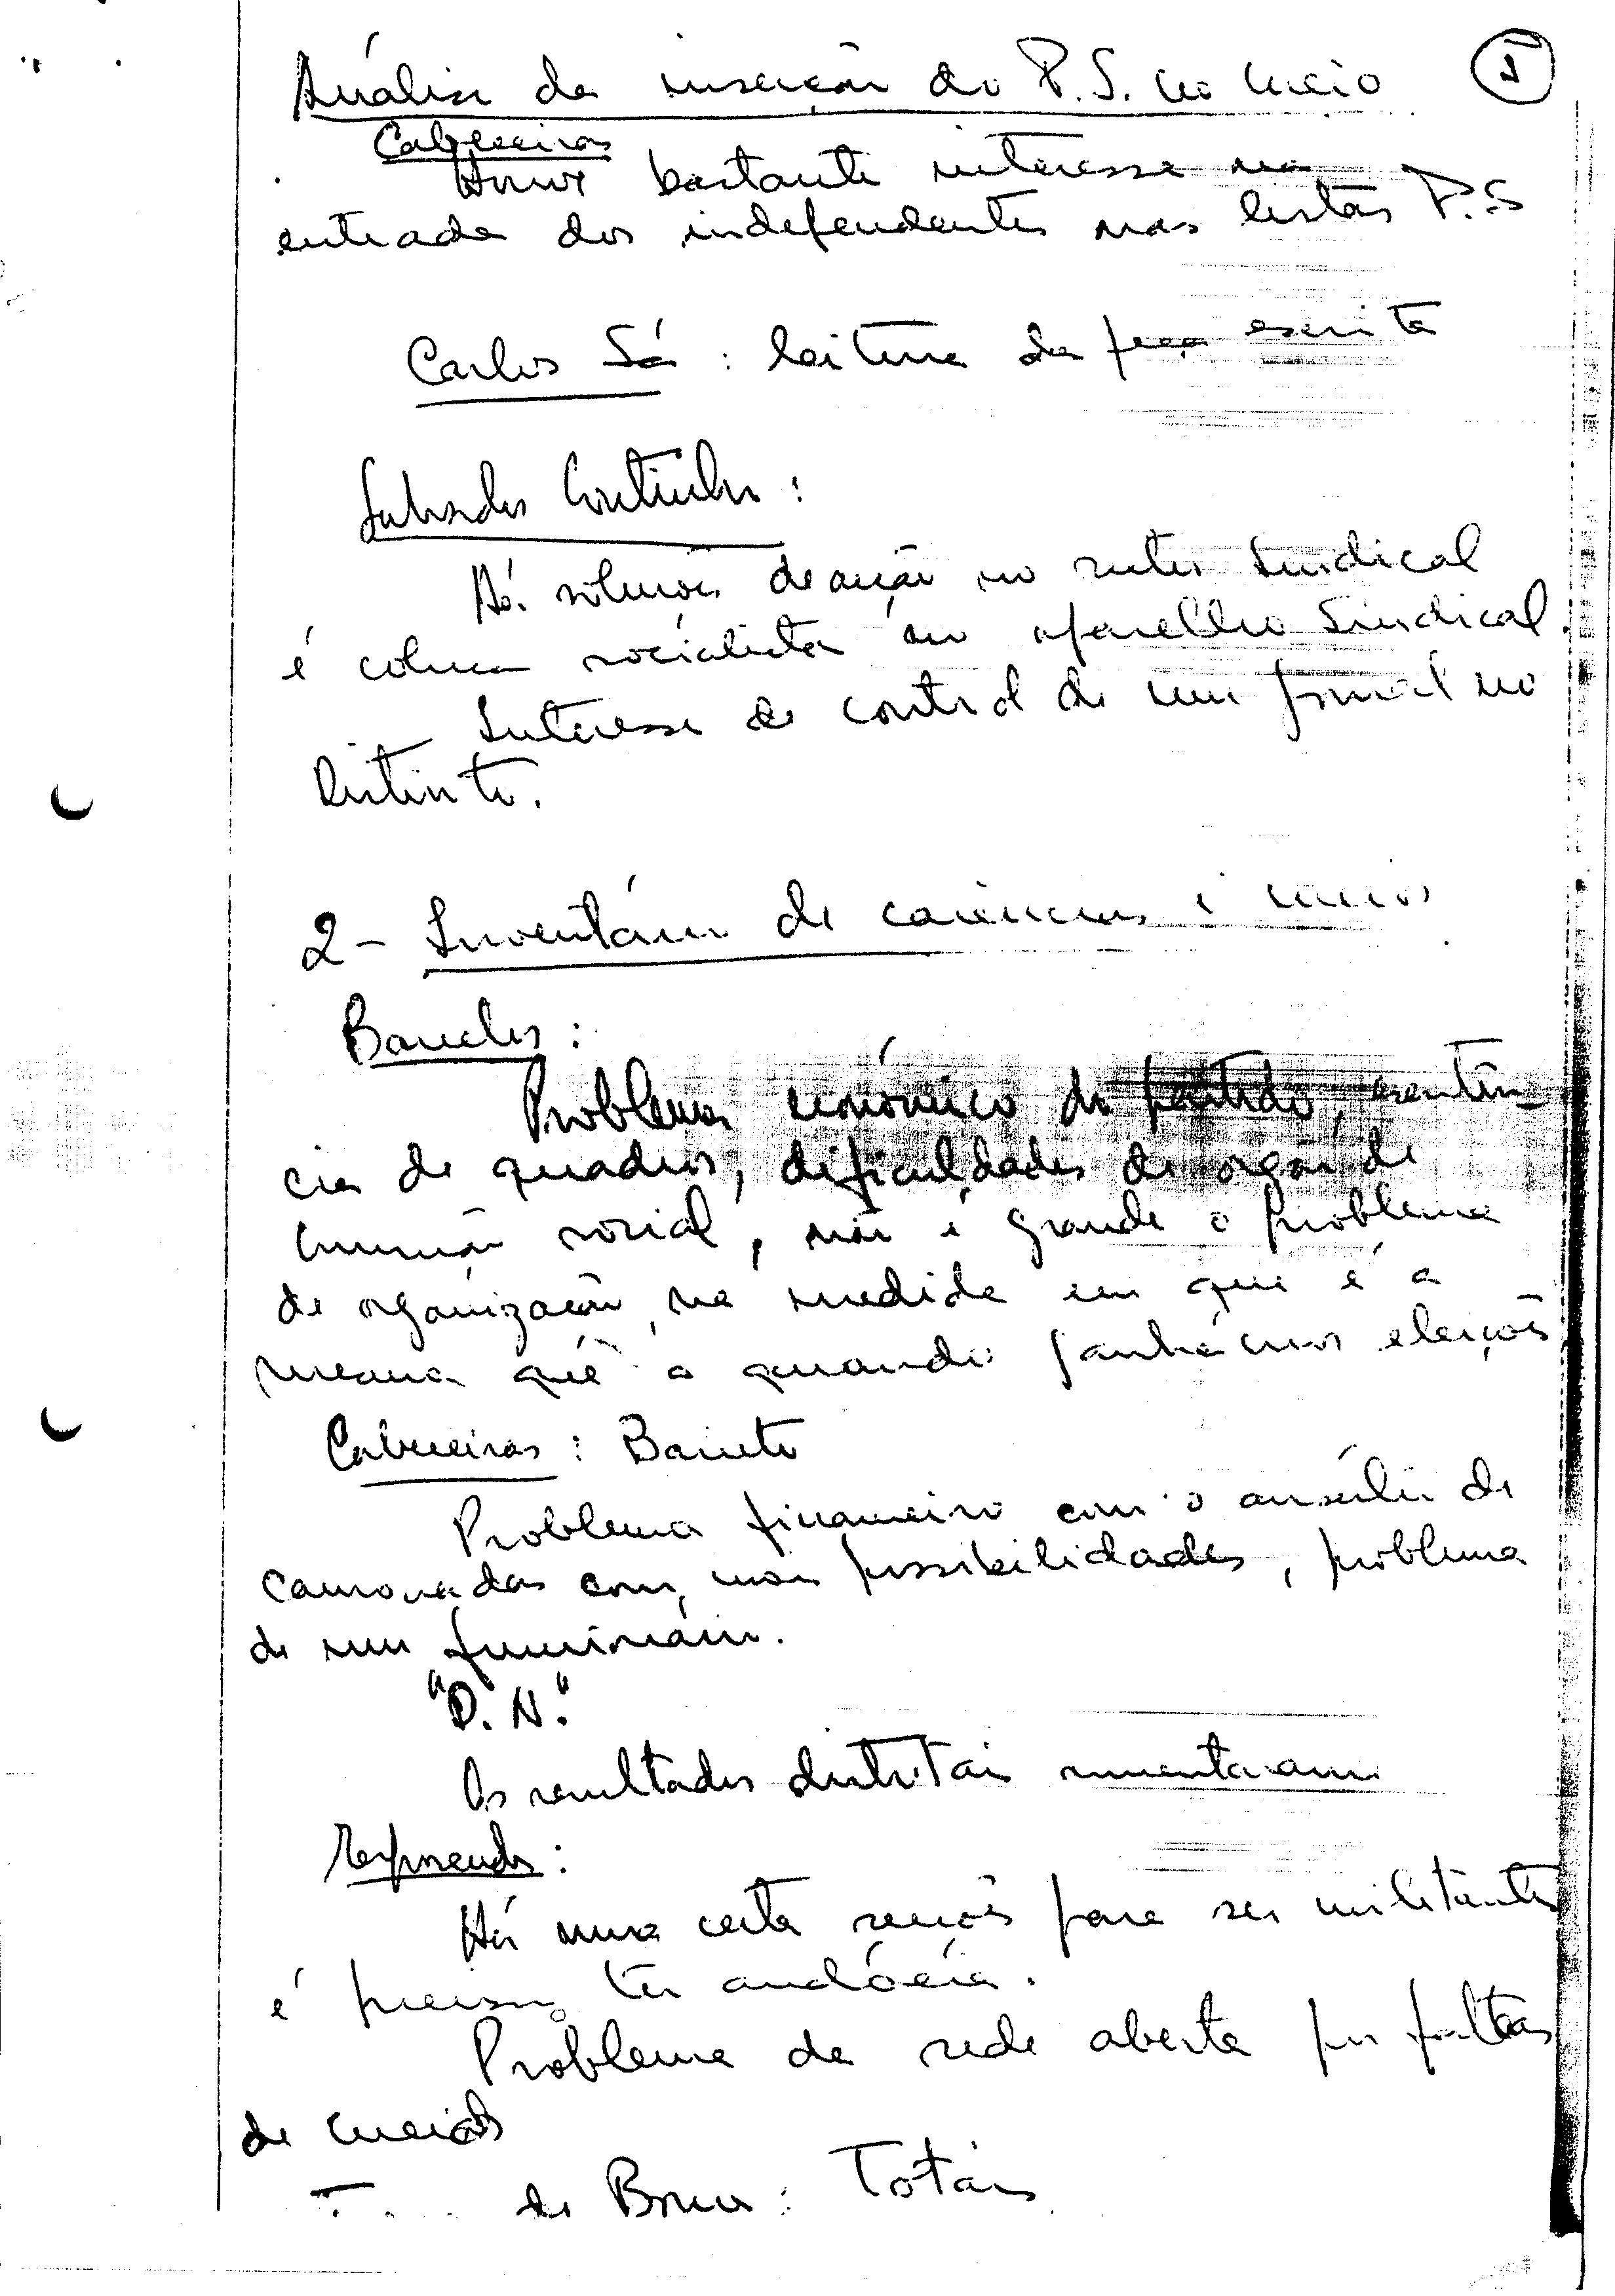 Análise da inserção do P.S. no meio 1
Cabeceiras
Houve bastante interesse na
entrada dos independentes nas listas P.S
Carlos Sá : leitura da peça escrita
Salvador Coutinho :
Há soluções de acção no sector Sindical
é coluna socialista no aparelho Sindical.
Interesse de control de um jornal no
Distrito.
2 - Inventário de carências e meios
Barcelos :
Problema económico do partido,
cia de quadros, dificuldades de orgão de
social, não é grande o problema
de organização, na medida em que é a
mesma que a quando ganhámos eleições
Cabeceiras : Barreto
Problema financeiro com o auxílio de
camaradas com mais possibilidades, problema
de um funcionário.
"D. N."
Os resultados distritais aumentaram
Esposende :
Há uma certa para ser militante
é preciso ter audácia.
Problema da sede aberta por faltas
de meios
de Bouro : Totais